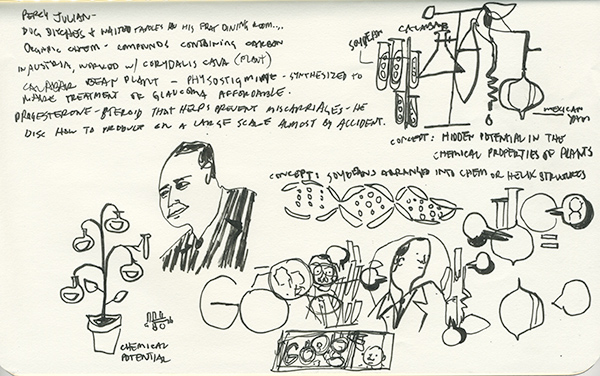 PERCY JULIAN-
DUG DITCHES & WAITED TABLES IN HIS FRAT DINING ROOM...
ORGANIC CHEM - COMPOUNDS CONTAINING CARBON
IN AUSTRIA, WORKED W/ CORYDALIS CAVA (PLANT)
CALABAR BEAN PLANT - PHYSOSTIGMINE - SYNTHESIZED TO
MAKE TREATMENT OF GLAUCOMA AFFORDABLE.
PROGESTERONE - STEROID THAT HELPS PREVENT MISCARRIAGES - HE
DISC HOW TO PRODUCE ON A LARGE SCALE ALMOST BY ACCIDENT.
SOYBEAN
CALABAR
MEXICAN
YAM
CONCEPT: HIDDEN POTENTIAL IN THE
CHEMICAL PROPERTIES OF PLANTS
CONCEPT: SOYBEANS ARRANGED INTO CHEM OR HELIX STRUCTURES
GO
CHEMICAL
POTENTIAL